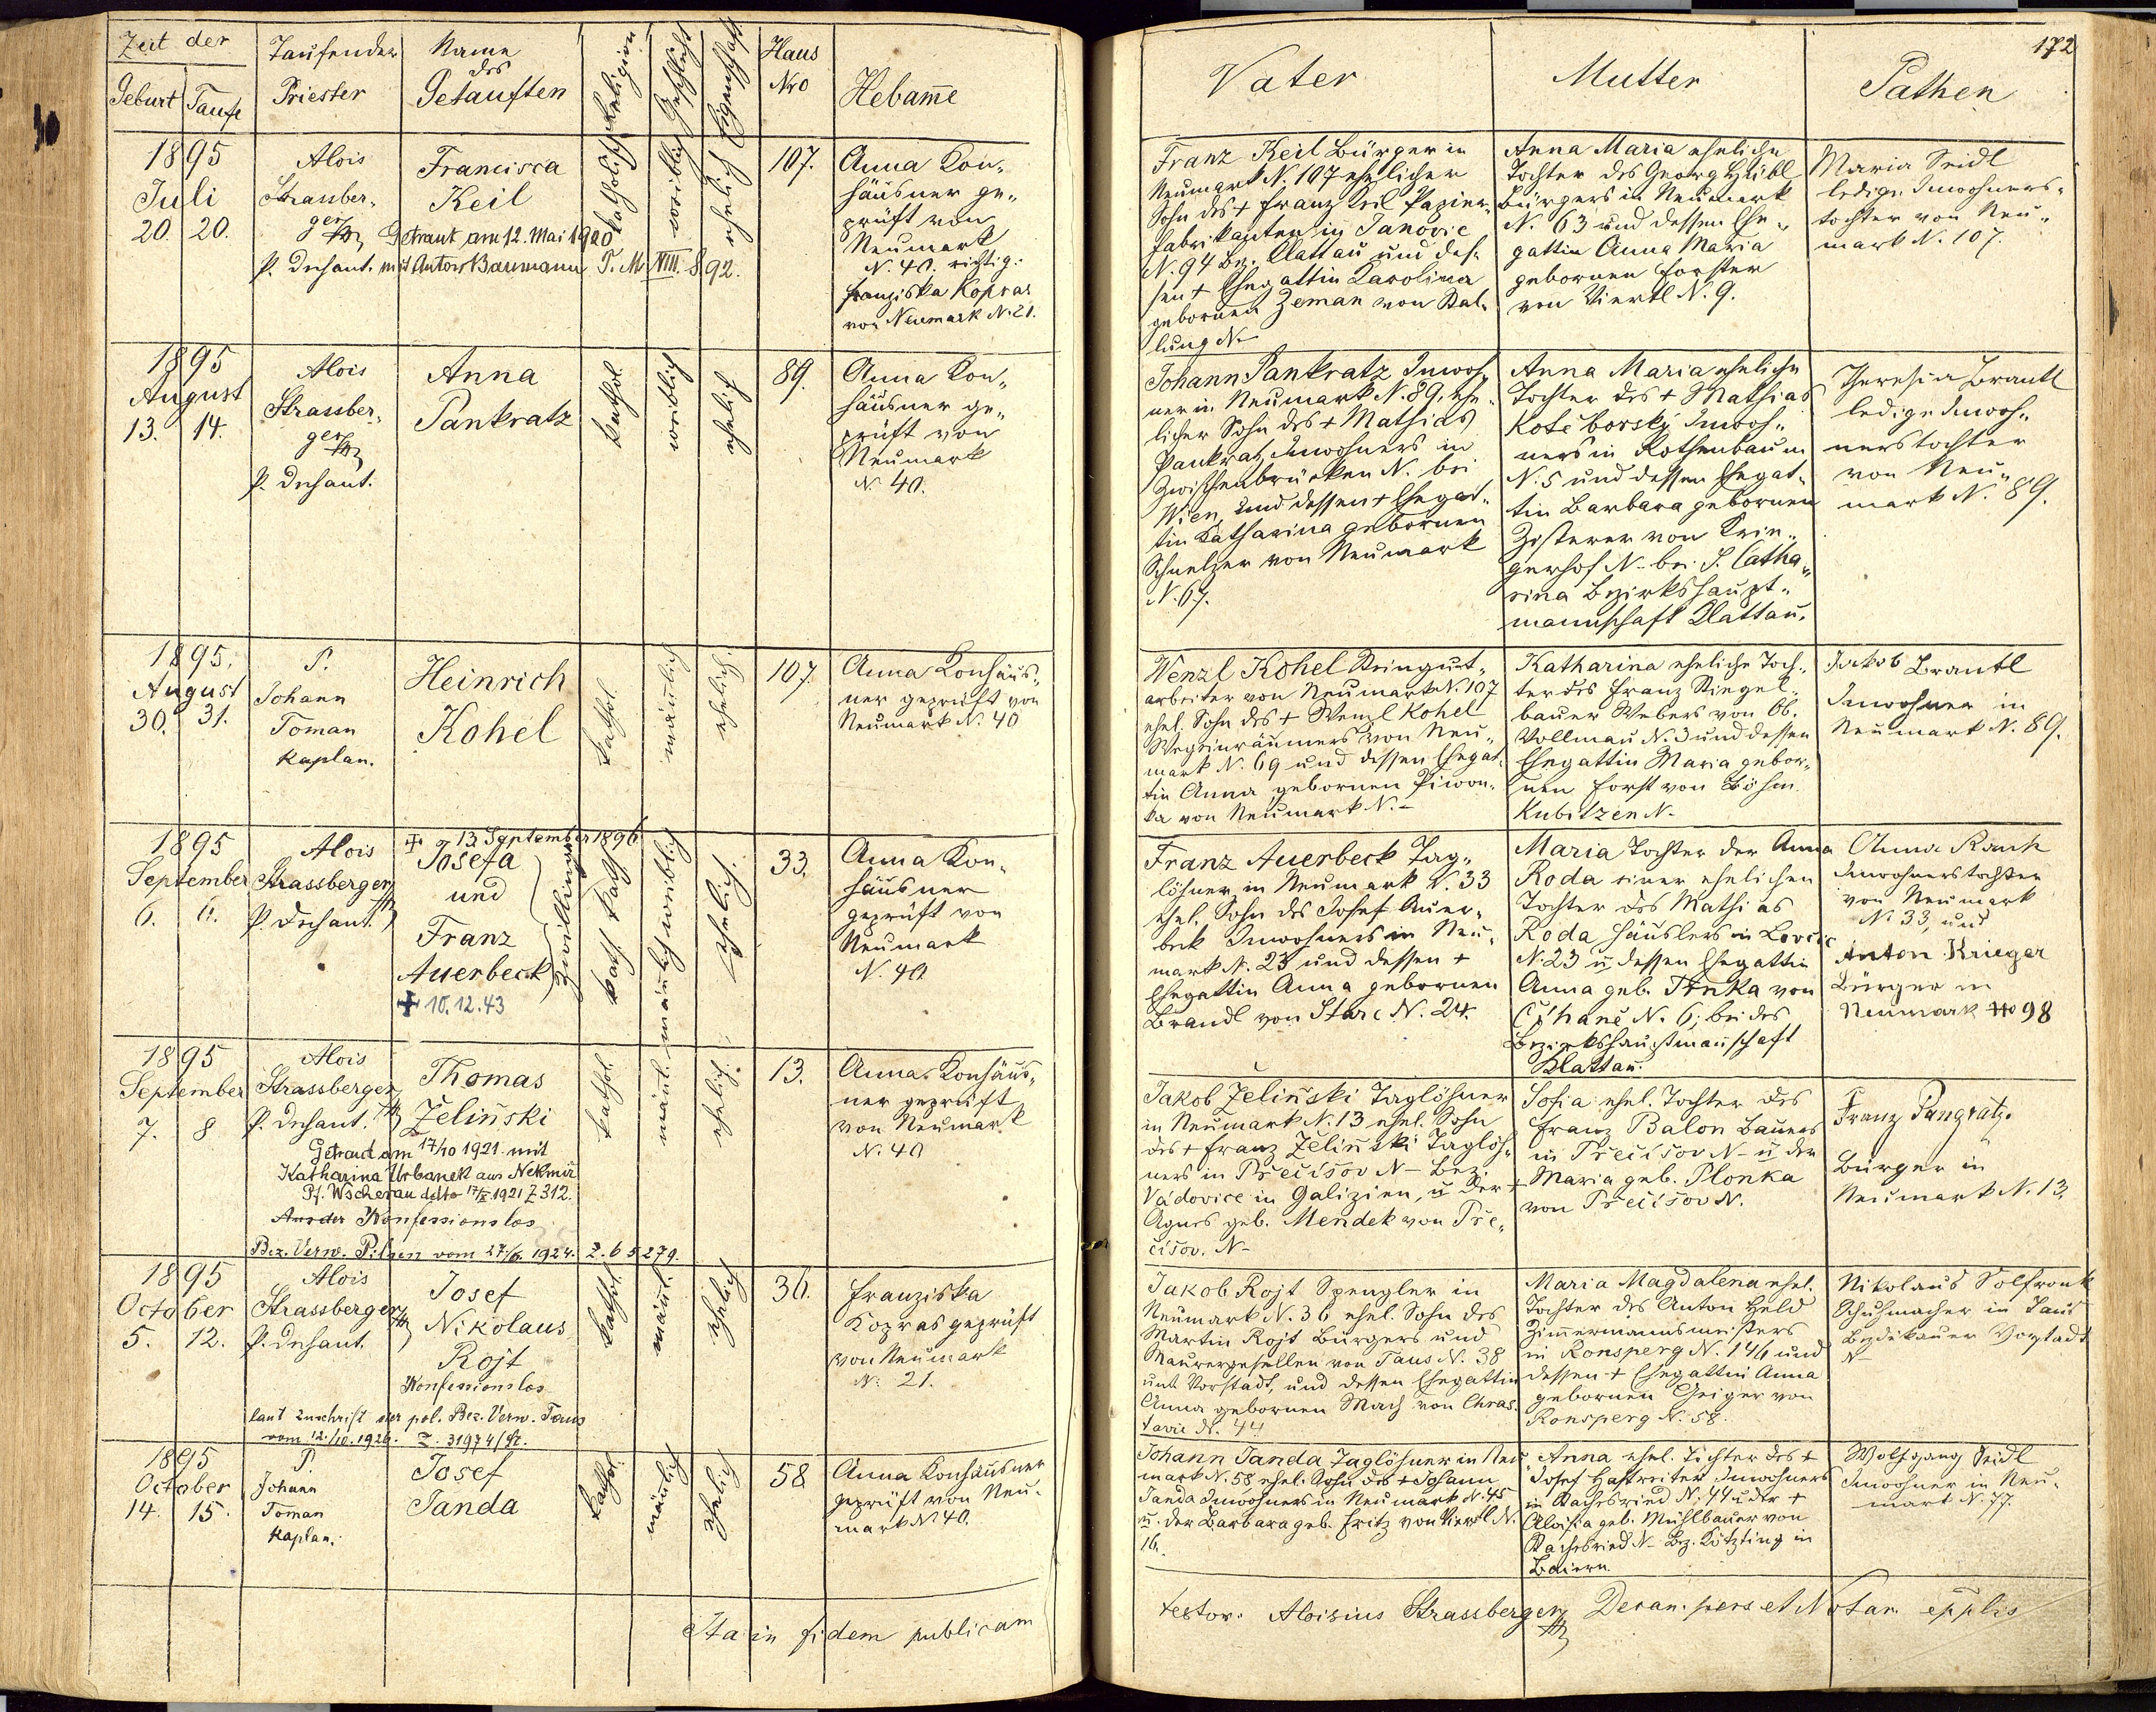 Zeit der
Geburt
Taufe
Taufender
Priester
Name
des
Getauften
Religion
Geschlecht
Eigenschaft
Haus
Nro
Hebamme
1895
Juli
20. 20.
Alois
Strassber-
ger
P. Dechant.
Francisca
Keil
Getraut am 12. Mai 1920
mit Anton Baumann T. M. XIII. 892.
katholisch
weiblich
ehelich
107.
Anna Kon-
häusner ge-
prüft von
Neumark
N. 40. richtig:
Franziska Kopras
von Neumark N. 21.
1895
August
13. 14.
Alois
Strassber-
ger
P. Dechant.
Anna
Pankratz
kathol.
weiblich
ehelich
89.
Anna Kon-
häusner ge-
prüft von
Neumark
N. 40.
1895.
August
30. 31.
P.
Johann
Toman
Kaplan.
Heinrich
Kohel
kathol.
männlich
ehelich.
107.
Anna Konhäus-
ner geprüft von
Neumark N. 40
1895
September
6. 6.
Alois
Strassberger
P. Dechant.
+ 13. September 1896
Josefa
und
Franz
Auerbeck
+ 10.12.43
Zwillinge
kath. kath.
männlich weiblich
ehelich.
33.
Anna Kon-
häusner
geprüft von
Neumark
N. 40
1895
September
7. 8
Alois
Strassberger
P. Dechant.
Thomas
Želinski
Getraut am 17/10 1921 mit
Katharina Urbanek aus Nekmíř
Pf. Wscherau ddto 17/X 1921 Z 312.
Aus der Konfessionslos
Bez. Verw. Pilsen vom 27/6. 1924. Z. 65279.
kathol.
männl.
ehelich.
13.
Anna Konhäus-
ner geprüft
von Neumark
N. 40
1895
October
5. 12.
Alois
Strassberger
P. Dechant.
Josef
Nikolaus
Rojt
Konfessionslos
laut Zuschrift der pol. Bez. Verw. Taus
vom 12./10. 1926. Z. 31974/
kathol.
männl.
ehelich
36.
Franziska
Kopras geprüft
von Neumark
N. 21.
1895
October
14. 15.
P.
Johann
Toman
Kaplan.
Josef
Janda
kathol.
männlich
ehelich
58.
Anna Konhäusner
geprüft von Neu-
mark N. 40.
Ita in fidem publicam
172
Vater
Mutter
Pathen
Franz Keil Bürger in
Neumark N. 107 ehelicher
Sohn des + Franz Keil Papier-
fabrikanten in Janovic
N. 94 Bez. Klattau und des-
sen + Ehegattin Karolina
gebornen Zeman von Stal-
lung N-
Anna Maria eheliche
Tochter des Georg Hübl
Bürgers in Neumark
N. 63 und dessen Ehe-
gattin Anna Maria
gebornen Forster
von Viertl N. 9.
Maria Seidl
ledige Inwohners-
tochter von Neu-
mark N. 107.
Johann Pankratz Inwoh-
ner in Neumark N. 89. ehe-
licher Sohn des + Mathias
Pankratz Inwohners in
Zwischenbrücken N. bei
Wien, und dessen + Ehegat-
tin Katharina gebornen
Schmelzer von Neumark
N. 67.
Anna Maria eheliche
Tochter des + Mathias
Kotěborský Inwoh-
ners in Rothenbaum
N. 5 und dessen Ehegat-
tin Barbara gebornen
Zisterer von Krin-
gerhof N- bei S. Catha-
rina Bezirkshaupt-
mannschaft Klattau.
Theresia Brantl
ledige Inwoh-
nerstochter
von Neu-
mark N. 89.
Wenzl Kohel Steingut-
arbeiter von Neumark N. 107
ehel. Sohn des + Wenzl Kohel
Wegeinräumers von Neu-
mark N. 69 und dessen Ehegat-
tin Anna gebornen Piwon-
ka von Neumark N.-
Katharina eheliche Toch-
ter des Franz Stiegel-
bauer Webers von Ob.
Vollmau N. 3 und dessen
Ehegattin Maria gebor-
nen Forst von Böhm.
Kubitzen N-
Jakob Brantl
Inwohner in
Neumark N. 89.
Franz Auerbeck Tag-
löhner in Neumark N. 33
ehel. Sohn des Josef Auer-
beck Inwohners in Neu-
mark N. 23 und dessen +
Ehegattin Anna gebornen
Brandl von Starc N. 24.
Maria Tochter der Anna
Roda einer ehelichen
Tochter des Mathias
Roda Häuslers in Lovčic
N. 23 u. dessen Ehegattin
Anna geb. Trnka von
Čihaně N. 6; beides
Bezirkshauptmannschaft
Klattau.
Anna Rank
Inwohnerstochter
von Neumark
N. 33, und
Anton Krieger
Bürger in
Neumark No 98
Jakob Želinski Taglöhner
in Neumark N. 13 ehel. Sohn
des + Franz Želinski Taglöh-
ners in Přecišov N- Bez.
Vadovice in Galizien, u. der +
Agnes geb. Mendek von Pře-
cišov. N-
Sofia ehel. Tochter des
Franz Balon Bauers
in Přecišov N- u. der
Maria geb. Plonka
von Přecišov N.
Franz Pangratz
Bürger in
Neumark N. 13.
Jakob Rojt Spengler in
Neumark N. 36 ehel. Sohn des
Martin Rojt Bürgers und
Maurergesellen von Taus N. 38
unt. Vorstadt, und dessen Ehegattin
Anna gebornen Mach von Chras-
tavic N. 44
Maria Magdalena ehel.
Tochter des Anton Held
Zimmermannsmeisters
in Ronsperg N. 146 und
dessen + Ehegattin Anna
gebornen Geiger von
Ronsperg N. 58.
Nikolaus Solfronk
Schuhmacher in Taus
Bezděkauer Vorstadt
N-
Johann Janda Taglöhner in Neu-
mark N. 58 ehel. Sohn des + Johann
Janda Inwohners in Neumark N. 45
u. der Barbara geb. Fritz von Viertl N.
16.
Anna ehel. Tochter des +
Josef Hastreiter Inwohners
in Kachesried N. 44 u. der +
Aloisia geb. Mühlbauer von
Kachesried N- Bez. Kötzting in
Baiern.
Wolfgang Seidl
Inwohner in Neu-
mark N. 77.
testor: Aloisius Strassberger Decan. pers et Notar. epplis